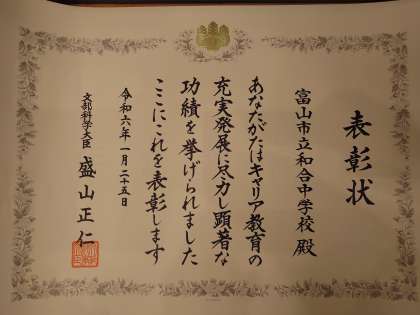 表彰状
富山市立和合中学校 殿
あなたがたはキャリア教育の
充実発展に尽力し顕著な
功績を挙げられました
ここにこれを表彰します
令和六年一月二十五日
文部科学大臣 盛山正仁